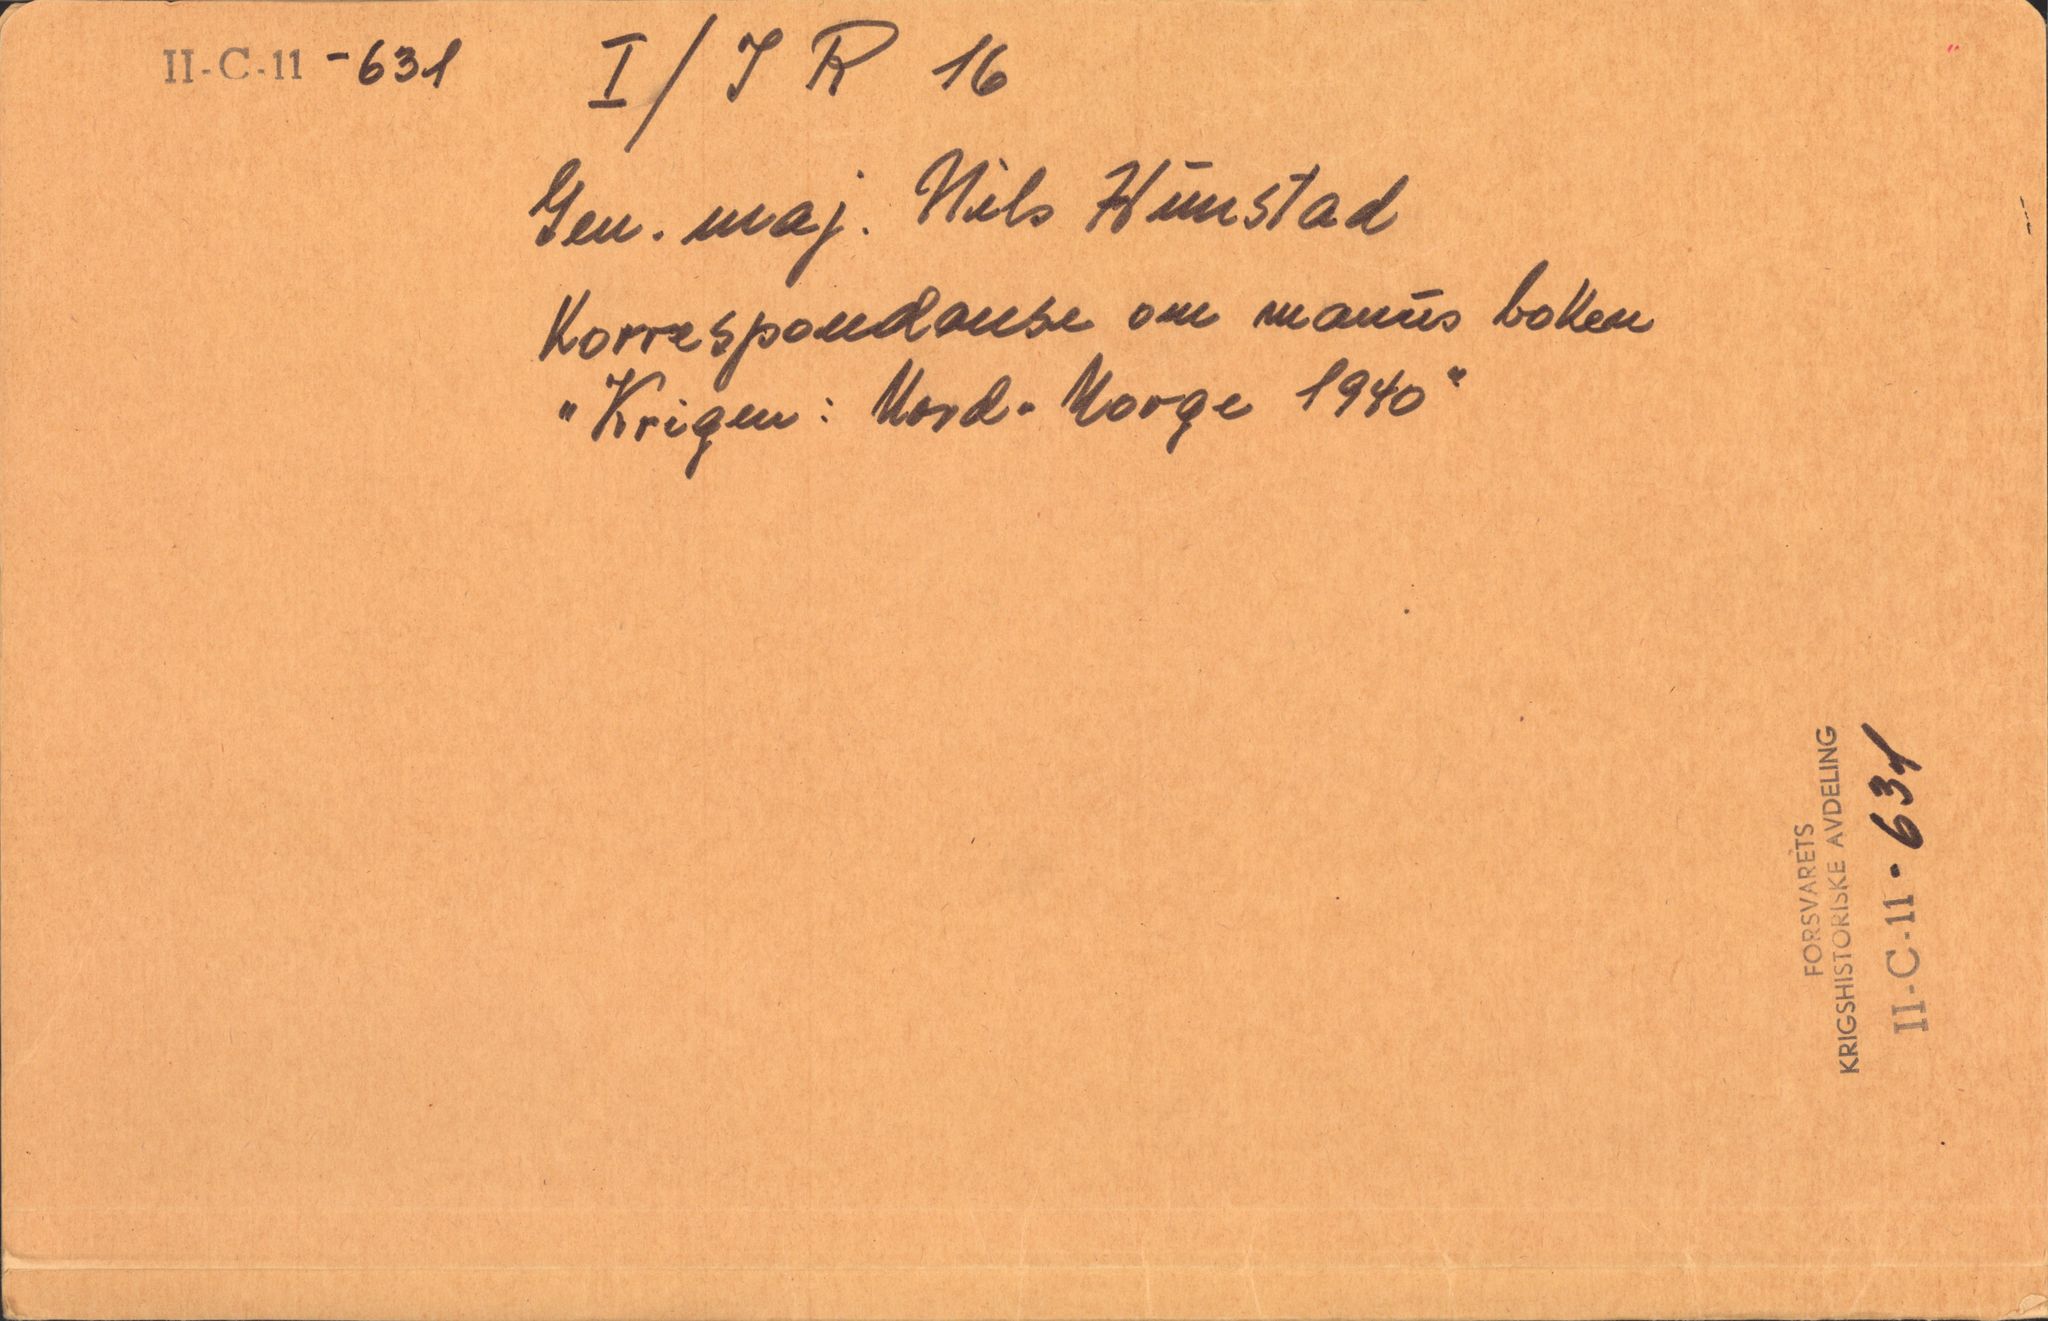 II-C-11 - 631
I / I R 16
Gen. maj. Nils Hunstad
Korrespondanse om manus boken
"Krigen i Nord-Norge 1940"
FORSVARETS
KRIGSHISTORISKE AVDELING
II-C-11 - 631